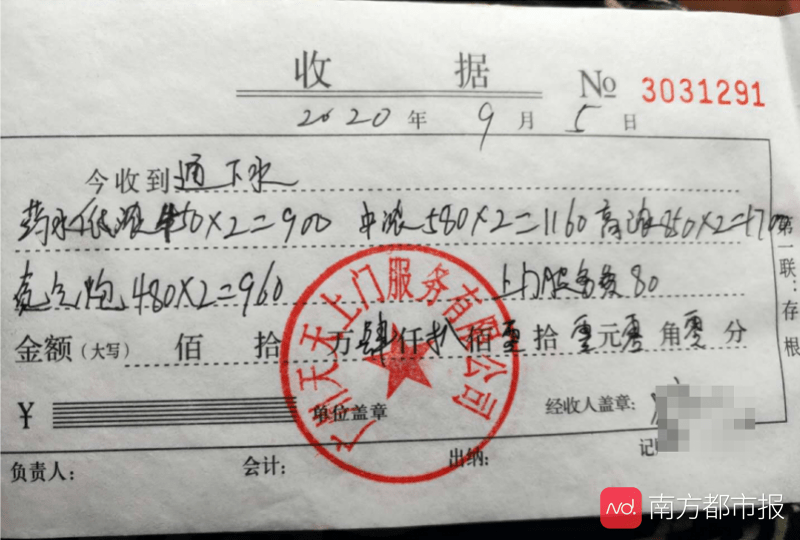 收 据 № 3031291
2020 年 9 月 5 日
今收到 通下水
药水低浓 450×2=900 中浓 580×2=1160 高浓 850×2=1700
氮气炮 480×2=960 上门服务费 80
金额(大写) 佰 拾 万 肆 仟 捌 佰 零 拾 零 元 零 角 零 分
¥ 单位盖章 经收人盖章:
负责人: 会计: 出纳: 记
第一联:存根
广州天天上门服务有限公司
nd. 南方都市报